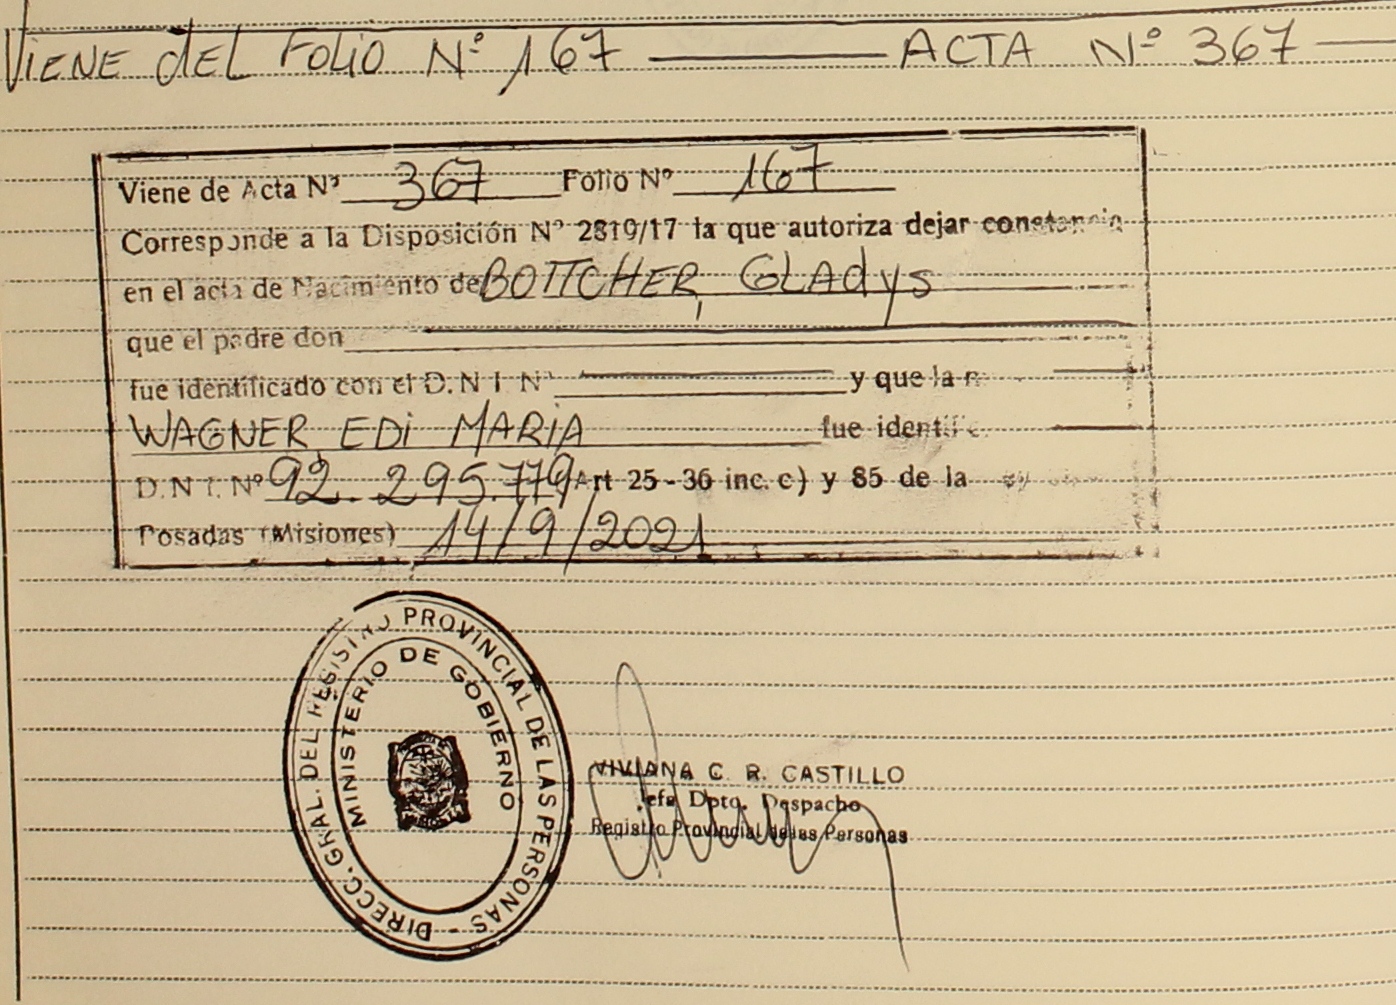 VIENE dEL FOLIO Nº 167 ACTA Nº 367
Viene de Acta Nº 367 Folio Nº 167
Corresponde a la Disposición Nº 2819/17 la que autoriza dejar constancia
en el acta de Nacimiento de BOTTCHER, GLADys
que el padre don
fue identificado con el D.N.I. Nº y que la
WAGNER EDi MARiA fue
D.N.I. Nº 92.295.779 Art 25-36 inc. c) y 85 de la
Posadas (Misiones) 14/9/2021
DIRECC. GRAL. DEL REGISTRO PROVINCIAL DE LAS PERSONAS -
MINISTERIO DE GOBIERNO
VIVIANA C. R. CASTILLO
Jefa Dpto. Despacho
Registro Provincial de las Personas